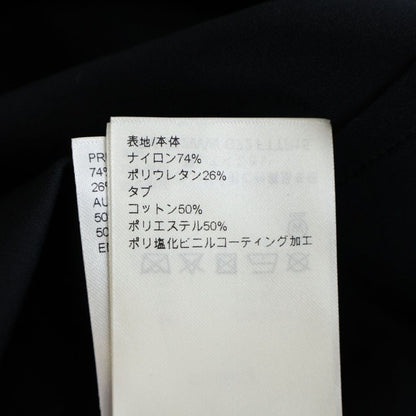 表地/本体
ナイロン74%
ポリウレタン26%
タブ
コットン50%
ポリエステル50%
ポリ塩化ビニルコーティング加工
PR
74%
26%
AU
50
50
E